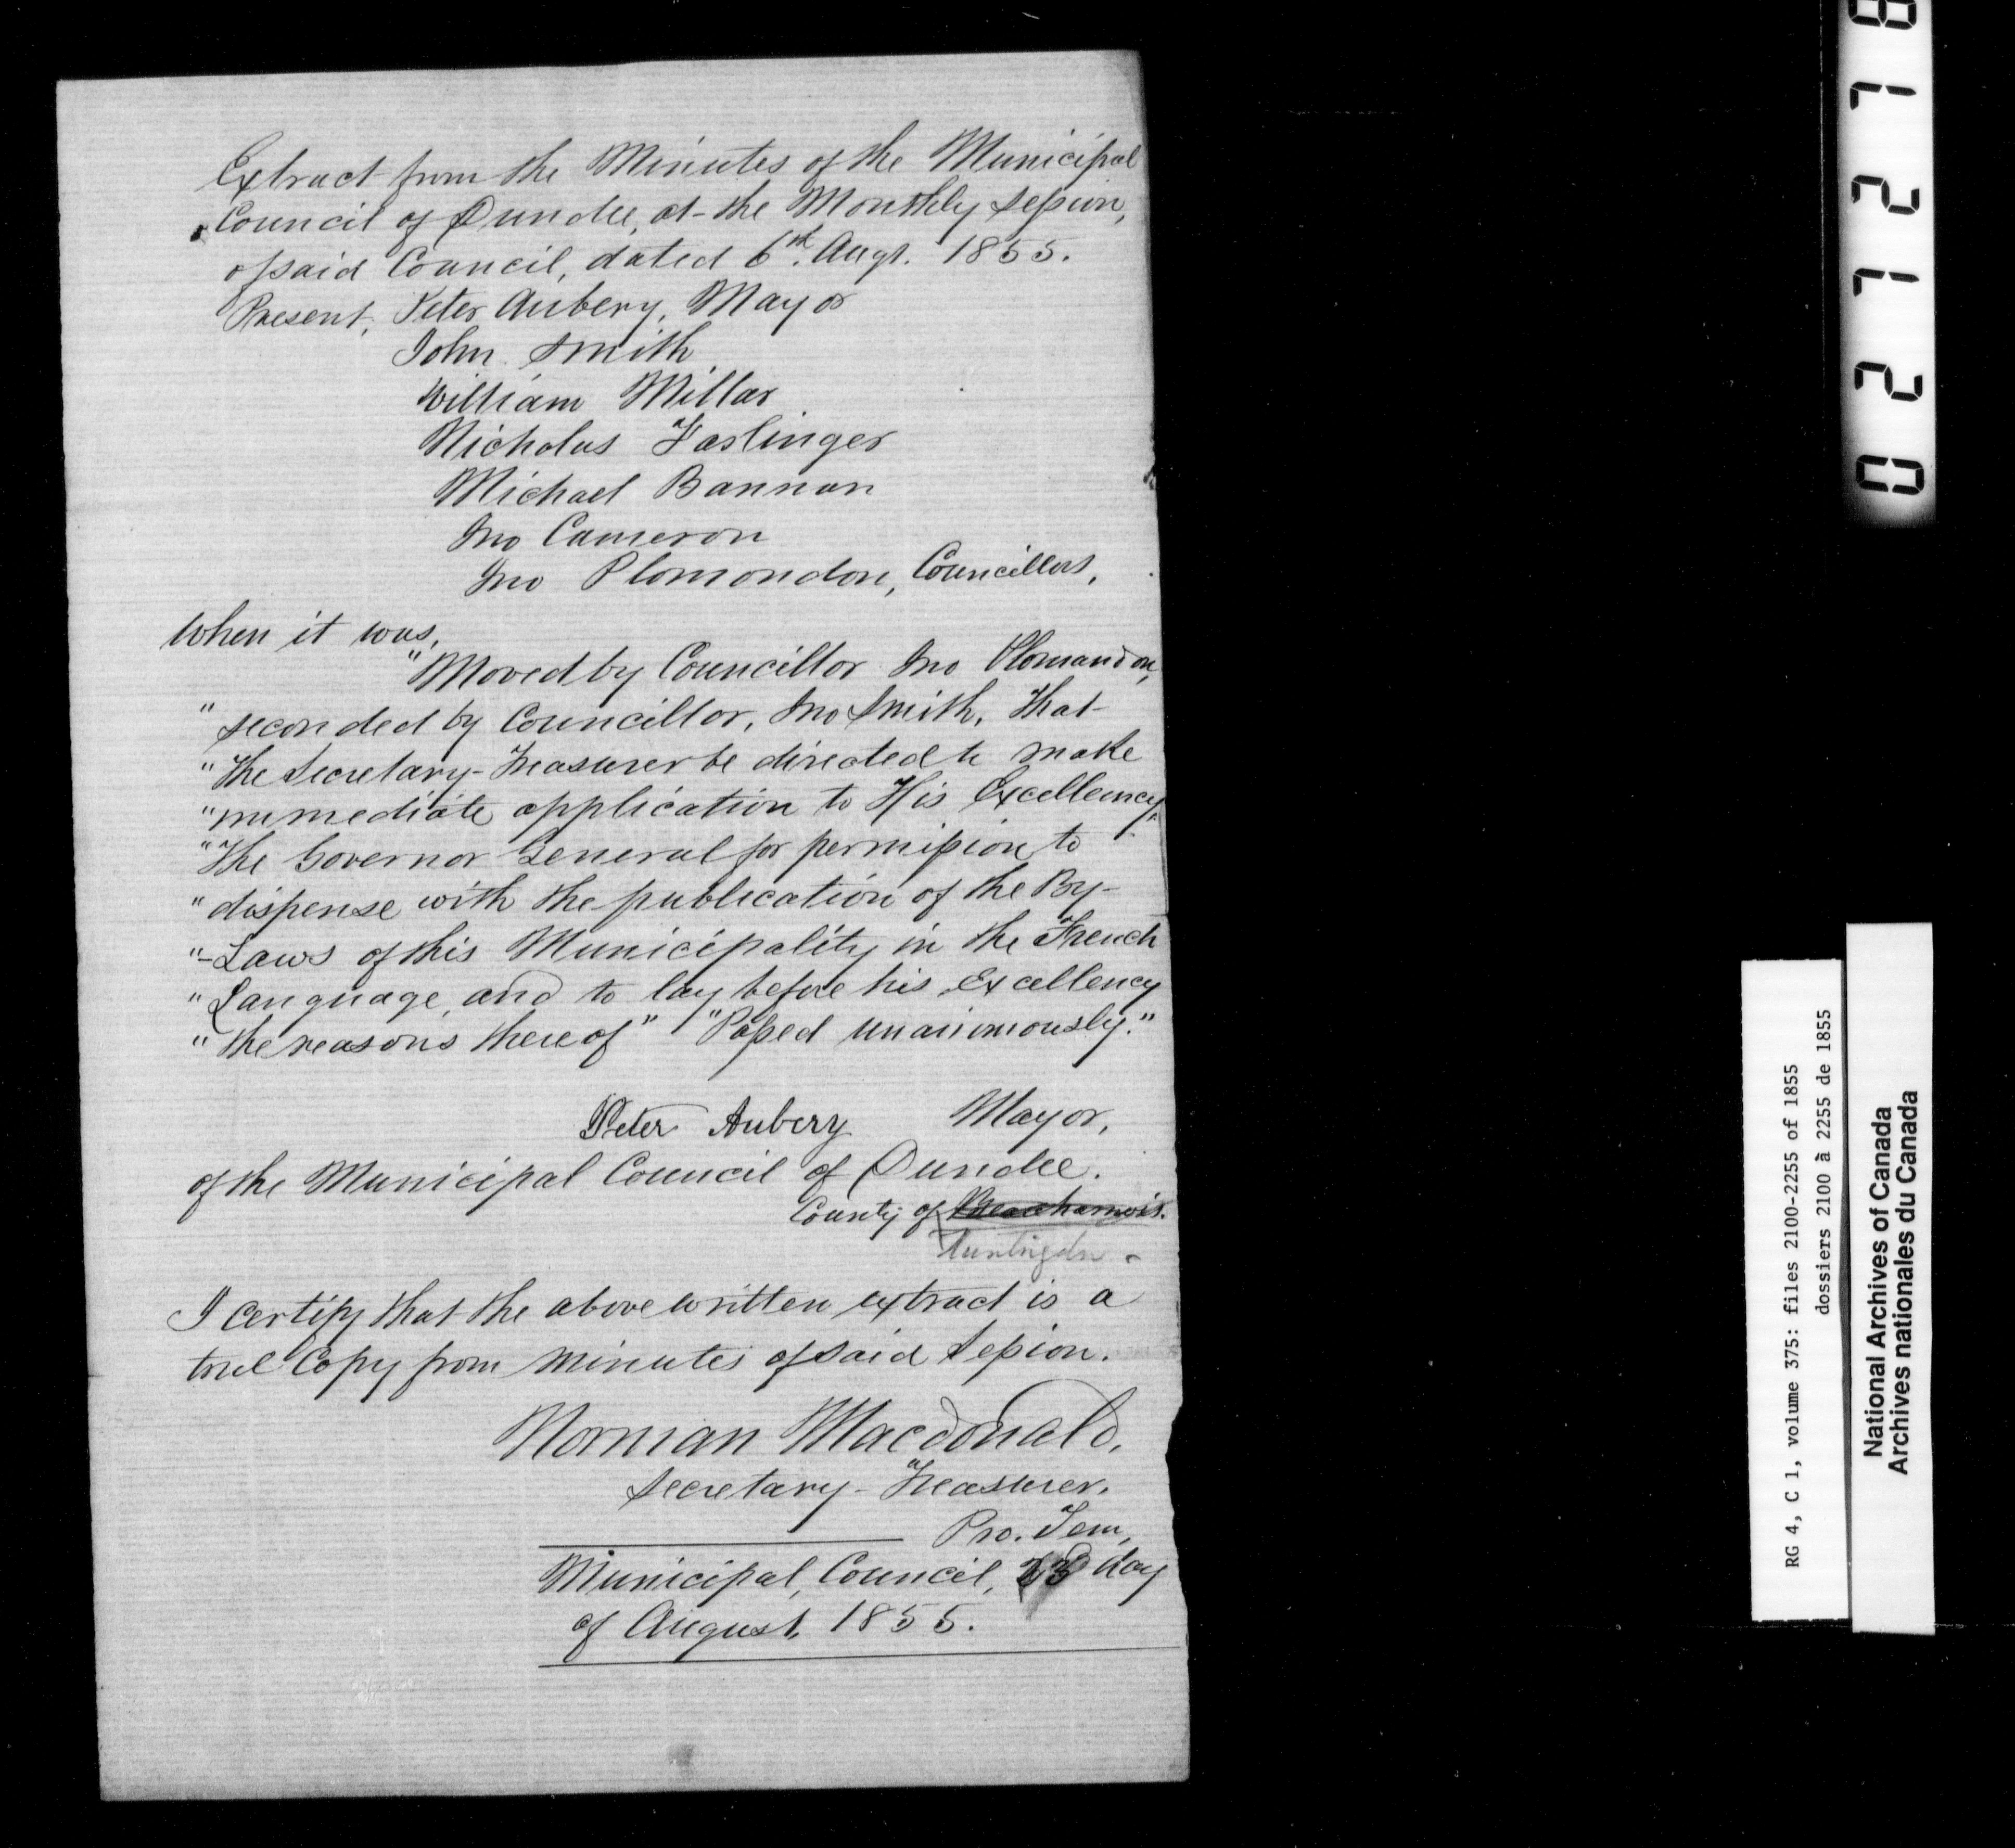 Extract from the Minutes of the Municipal
Council of Dundee, at the Monthly Session,
of said Council, dated 6th. Augt. 1855.
Present, Peter Aubery, Mayor
John Smith
William Millar
Nicholas Farlinger
Michael Bannon
Jno Cameron
Jno Plomondon, Councillors,
When it was,
"Moved by Councillor Jno Plomandon,
"seconded by Councillor, Jno Smith, That
"The Secretary-Treasurer be directed to make
"immediate application to His Excellency,
"The Governor General for permission to
"dispense with the publication of the By-
"-Laws of this Municipality in the French
"Language, and to lay before his Excellency
"the reasons thereof" "Passed unanimously."
Peter Aubery Mayor,
of the Municipal Council of Dundee.
County of Beauharnois.
Huntingdon
I certify that the above written extract is a
true Copy from Minutes of said Session.
Norman Macdonald,
Secretary-Treasurer,
Pro. Tem,
Municipal, Council, day
of August, 1855.
RG 4, C 1, volume 375: files 2100-2255 of 1855
dossiers 2100 à 2255 de 1855
National Archives of Canada
Archives nationales du Canada